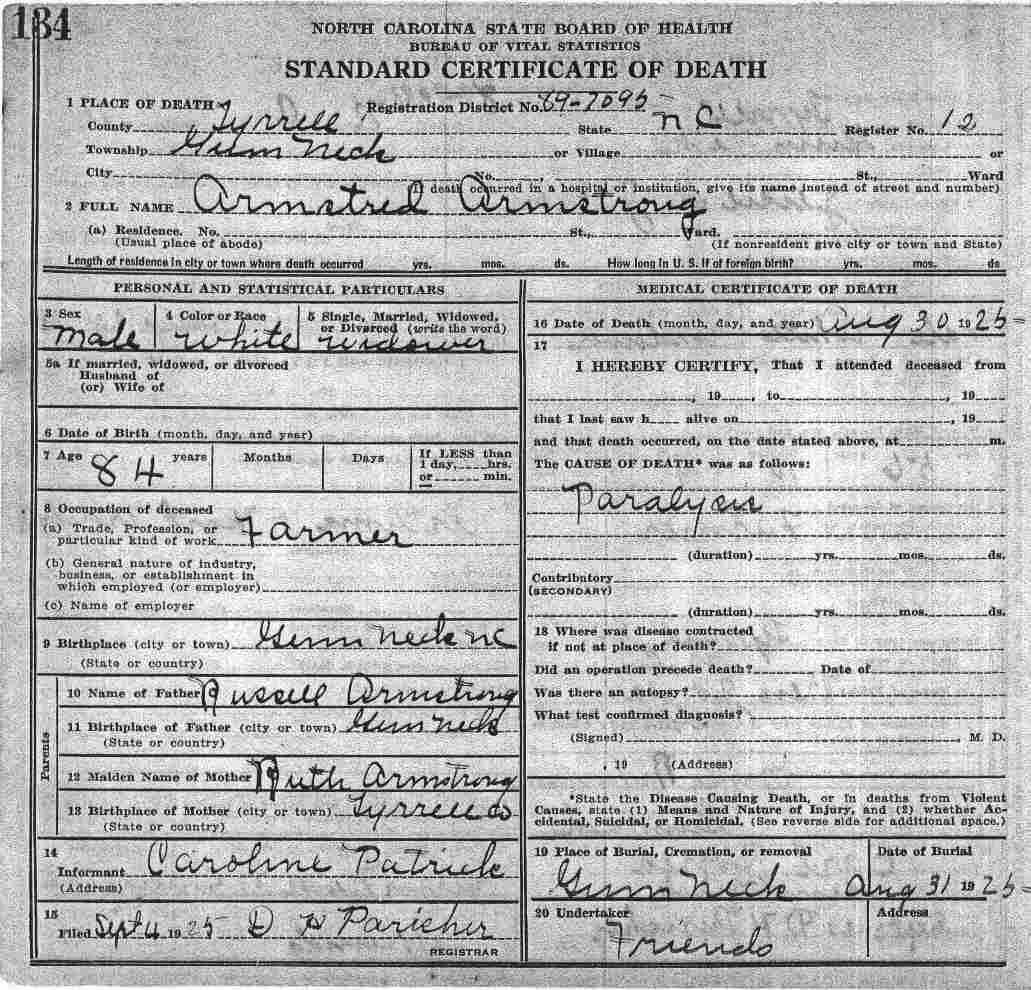 184
NORTH CAROLINA STATE BOARD OF HEALTH
BUREAU OF VITAL STATISTICS
STANDARD CERTIFICATE OF DEATH
1 PLACE OF DEATH Registration District No. 89-7095
County Tyrrell State NC Register No. 12
Township Gum Neck or Village or
City No. , St., Ward
(If death occurred in a hospital or institution, give its name instead of street and number)
2 FULL NAME Armstred Armstrong
(a) Residence. No. St., Ward.
(Usual place of abode) (If nonresident give city or town and State)
Length of residence in city or town where death occurred yrs. mos. ds. How long in U. S. if of foreign birth? yrs. mos. ds
PERSONAL AND STATISTICAL PARTICULARS
3 Sex 4 Color or Race 5 Single, Married, Widowed,
or Divorced (write the word)
Male White Widower
5a If married, widowed, or divorced
Husband of
(or) Wife of
6 Date of Birth (month, day, and year)
7 Age 84 years Months Days If LESS than
1 day, hrs.
or min.
8 Occupation of deceased
(a) Trade, Profession, or
particular kind of work Farmer
(b) General nature of industry,
business, or establishment in
which employed (or employer)
(c) Name of employer
9 Birthplace (city or town) Gum Neck NC
(State or country)
Parents
10 Name of Father Russell Armstrong
11 Birthplace of Father (city or town) Gum Neck
(State or country)
12 Maiden Name of Mother Ruth Armstrong
13 Birthplace of Mother (city or town) Tyrrell Co
(State or country)
14
Informant Caroline Patrick
(Address)
15
Filed Sept 4 1925 D H Paricher
REGISTRAR
MEDICAL CERTIFICATE OF DEATH
16 Date of Death (month, day, and year) Aug 30 1925
17
I HEREBY CERTIFY, That I attended deceased from
, 19 , to , 19
that I last saw h alive on , 19
and that death occurred, on the date stated above, at m.
The CAUSE OF DEATH* was as follows:
Paralysis
(duration) yrs. mos. ds.
Contributory
(SECONDARY)
(duration) yrs. mos. ds.
18 Where was disease contracted
if not at place of death?
Did an operation precede death? Date of
Was there an autopsy?
What test confirmed diagnosis?
(Signed) M. D.
, 19 (Address)
*State the Disease Causing Death, or in deaths from Violent
Causes, state (1) Means and Nature of Injury, and (2) whether Ac-
cidental, Suicidal, or Homicidal. (See reverse side for additional space.)
19 Place of Burial, Cremation, or removal Date of Burial
Gum Neck Aug 31 1925
20 Undertaker Address
Friends